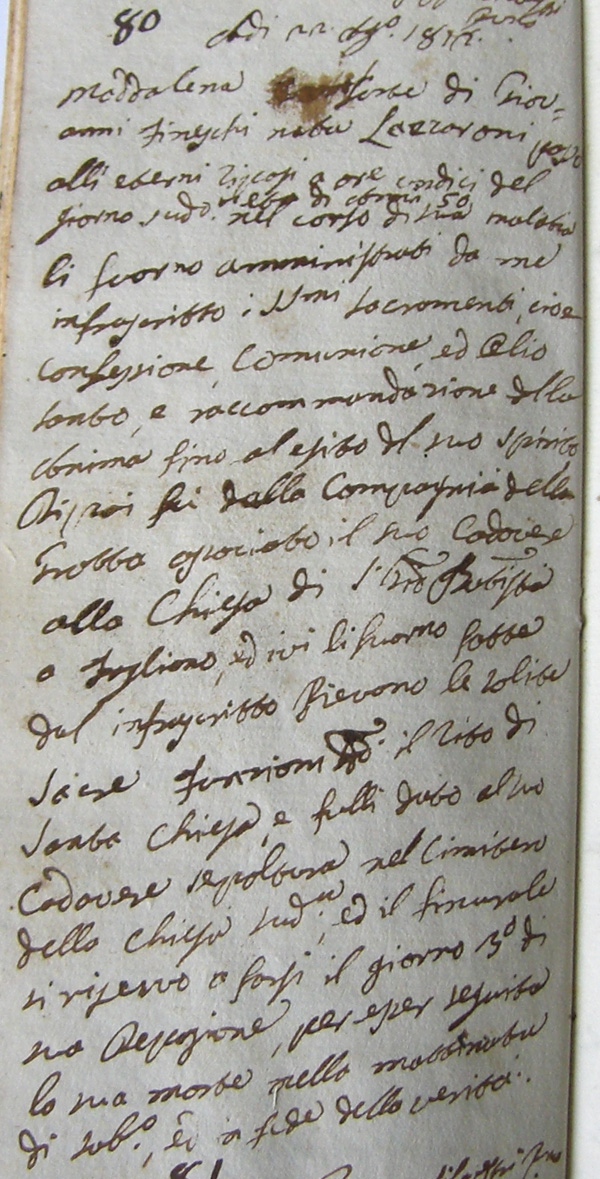 80
Adì 22 Ag.o 181
Maddalena Consorte di Giov=
anni Fineschi nata Lazzaroni passò
alli eterni riposi a ore undici del
giorno sudd.o età di anni 50
nel corso di sua malatia
li furno amministrati da me
infrascritto i SSmi Sacramenti, cioè
Confessione, Comunione, ed Olio
Santo, e raccommandazione della
Anima fino al esito del suo Spirito
Di poi fù dalla Compagnia della
Grotta associato il suo Cadavere
alla Chiesa di S. Gio: Batista
a Fogliano, ed ivi li furno fatte
dal infrascritto Pievano le solite
Sacre Funzioni il Rito di
Santa Chiesa, e fulli dato al suo
Cadavere sepoltura nel Cimitero
della Chiesa sud.a, ed il Funerale
si riservò a farsi il giorno 3.o di
sua Deposizione, per esser seguita
la sua morte nella mattinata
di Sab.o, ed in fede della verità.
81